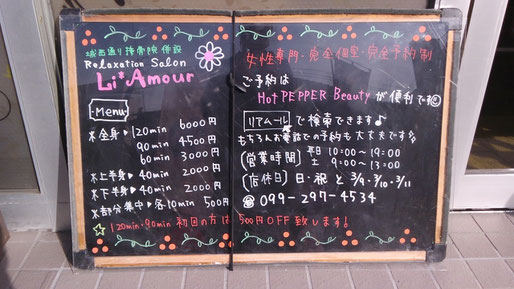 城西通り接骨院併設
Relaxation Salon
Li*Amour
Menu
*全身▶120min 6000円
90min 4500円
60min 3000円
*上半身▶40min 2000円
*下半身▶40min 2000円
*部分集中▶各10min 500円
☆120min・90min 初回の方は500円OFF致します!
女性専門・完全個室・完全予約制
ご予約は
Hot PEPPER Beautyが便利です
リアムールで検索できます♪
もちろんお電話での予約も大丈夫です
[営業時間] 平日 10:00~19:00
土 9:00~13:00
[店休日] 日・祝と3/9・3/10・3/11
☎ 099-297-4534